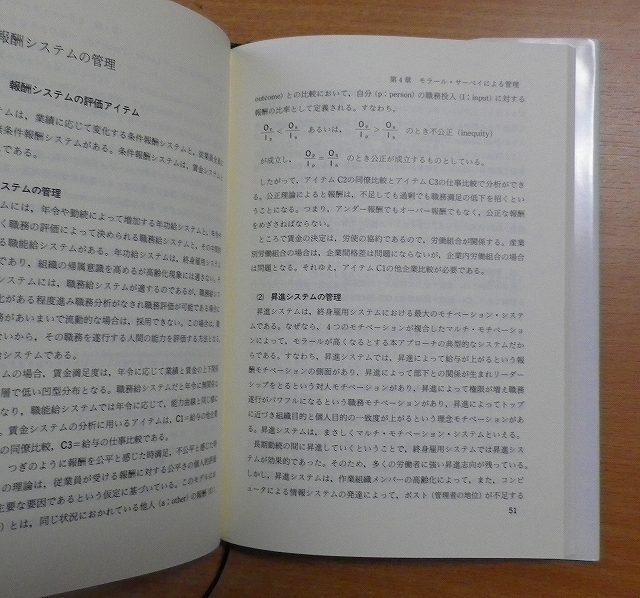 報酬システムの管理
報酬システムの評価アイテム
テムは、業績に応じて変化する条件報酬システムと、従業員
条件報酬システムがある。条件報酬システムは、賃金システム
である。
システムの管理
ムには、年令や勤続によって増加する年功給システムと、
く職務の評価によって決められる職務給システムと、その中間
る職能給システムがある。年功給システムは、終身雇用システム
であり、組織の帰属意識を高めるが高齢化現象には適さない。
システムには、職務給システムが適するのであるが、職務給シス
化がある程度進み職務分析がなされ職務評価が可能である場合に
務があいまいで流動的な場合は、採用できない。この場合は、
ないから、その職務を遂行する人間の能力を評価する方法となる
システムである。
テムの場合、賃金満足度は、年令に応じて業績と賃金の上下関係
層で低い凹型分布となる。職務給システムだと年令に無関係に
なり、職能給システムでは年令に応じて、能力曲線と同じ
。賃金システムの分析に用いるアイテムは、C1=給与の他
の同僚比較、C3=給与の仕事比較である。
つぎのように報酬を公平と感じた時満足、不公平と感じた時
の理論は、従業員が受ける報酬に対する公平さの個人的評価
主要な要因であるという仮定に基づいている。このモデルに
)とは、同じ状況におかれている他人(a:other)の報酬(O:
第4章 モラール・サーベイによる管理
outcome)との比較において、自分(p:person)の職務投入(I:input)に対する
報酬の比率として定義される。すなわち、
Op/Ip < Oa/Ia あるいは、 Op/Ip > Oa/Ia のとき不公正(inequity)
が成立し、 Op/Ip = Oa/Ia のとき公正が成立するものとしている。
したがって、アイテムC2の同僚比較とアイテムC3の仕事比較で分析ができ
る。公正理論によると報酬は、不足しても過剰でも職務満足の低下を招くとい
うことになる。つまり、アンダー報酬でもオーバー報酬でもなく、公正な報酬
をめざさねばならない。
ところで賃金の決定は、労使の協約であるので、労働組合が関係する。産業
別労働組合の場合は、企業間格差は問題にならないが、企業内労働組合の場合
は問題となる。それゆえ、アイテムC1の他企業比較が必要である。
(2) 昇進システムの管理
昇進システムは、終身雇用システムにおける最大のモチベーション・システ
ムである。なぜなら、4つのモチベーションが複合したマルチ・モチベーション
によって、モラールが高くなるとする本アプローチの典型的なシステムだか
らである。すなわち、昇進システムでは、昇進によって給与が上がるという報
酬モチベーションの側面があり、昇進によって部下との関係が生まれリーダー
シップをとるという対人モチベーションがあり、昇進によって権限が増え職務
遂行がパワフルになるという職務モチベーションがあり、昇進によってトップ
に近づき組織目的と個人目的の一致度が上がるという理念モチベーションがあ
る。昇進システムは、まさしくマルチ・モチベーション・システムといえる。
長期勤続の間に昇進していくということで、終身雇用システムでは昇進シス
テムが効果的であった。そのため、多くの労働者に強い昇進志向が残っている。
しかし、昇進システムは、作業組織メンバーの高齢化によって、また、コンピ
ュータによる情報システムの発達によって、ポスト(管理者の地位)が不足する
51